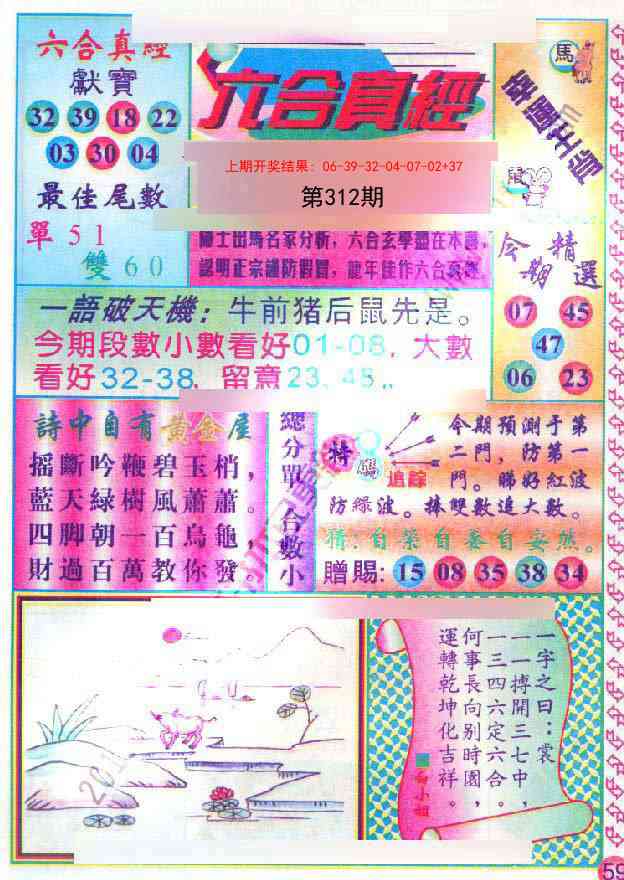 六合真經
獻寶
32 39 18 22
03 30 04
最佳尾數
單 51
雙 60
六合真經
上期开奖结果: 06-39-32-04-07-02+37
第312期
師士出馬名家分析, 六合玄學盡在本壇,
認明正宗謹防假冒, 龍年佳作六合真經
馬
鼠
今期精選
07 45
47
06 23
一語破天機: 牛前猪后鼠先是。
今期段數小數看好01-08, 大數
看好32-38, 留意23、45
詩中自有黃金屋
摇斷吟鞭碧玉梢,
藍天緑樹風蕭蕭。
四脚朝一百烏龜,
財過百萬教你發。
總分單 合數小
特碼
追踪
今期預測于第
二門, 防第一
門。睇好紅波
防緑波。捧雙數追大數。
猜: 自築自養自安然。
贈賜: 15 08 35 38 34
一字之曰: 裳
一一搏開三七中,
一三四六定六合。
何事長向别時圓,
運轉乾坤化吉祥。
59